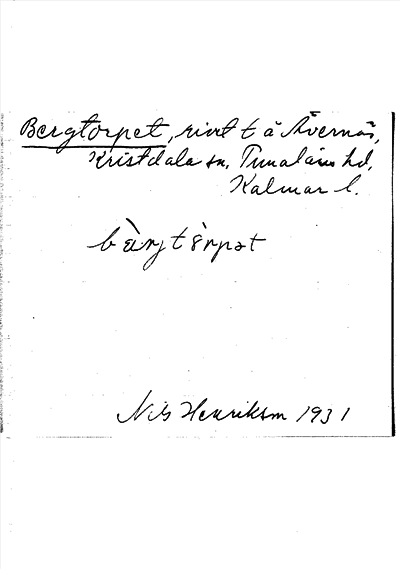 Bergtorpet, rivet t å Ävernäs,
Kristdala sn, Tunaläns hd,
Kalmar l.
bærjtòrpət
Nils Henriksm 1931